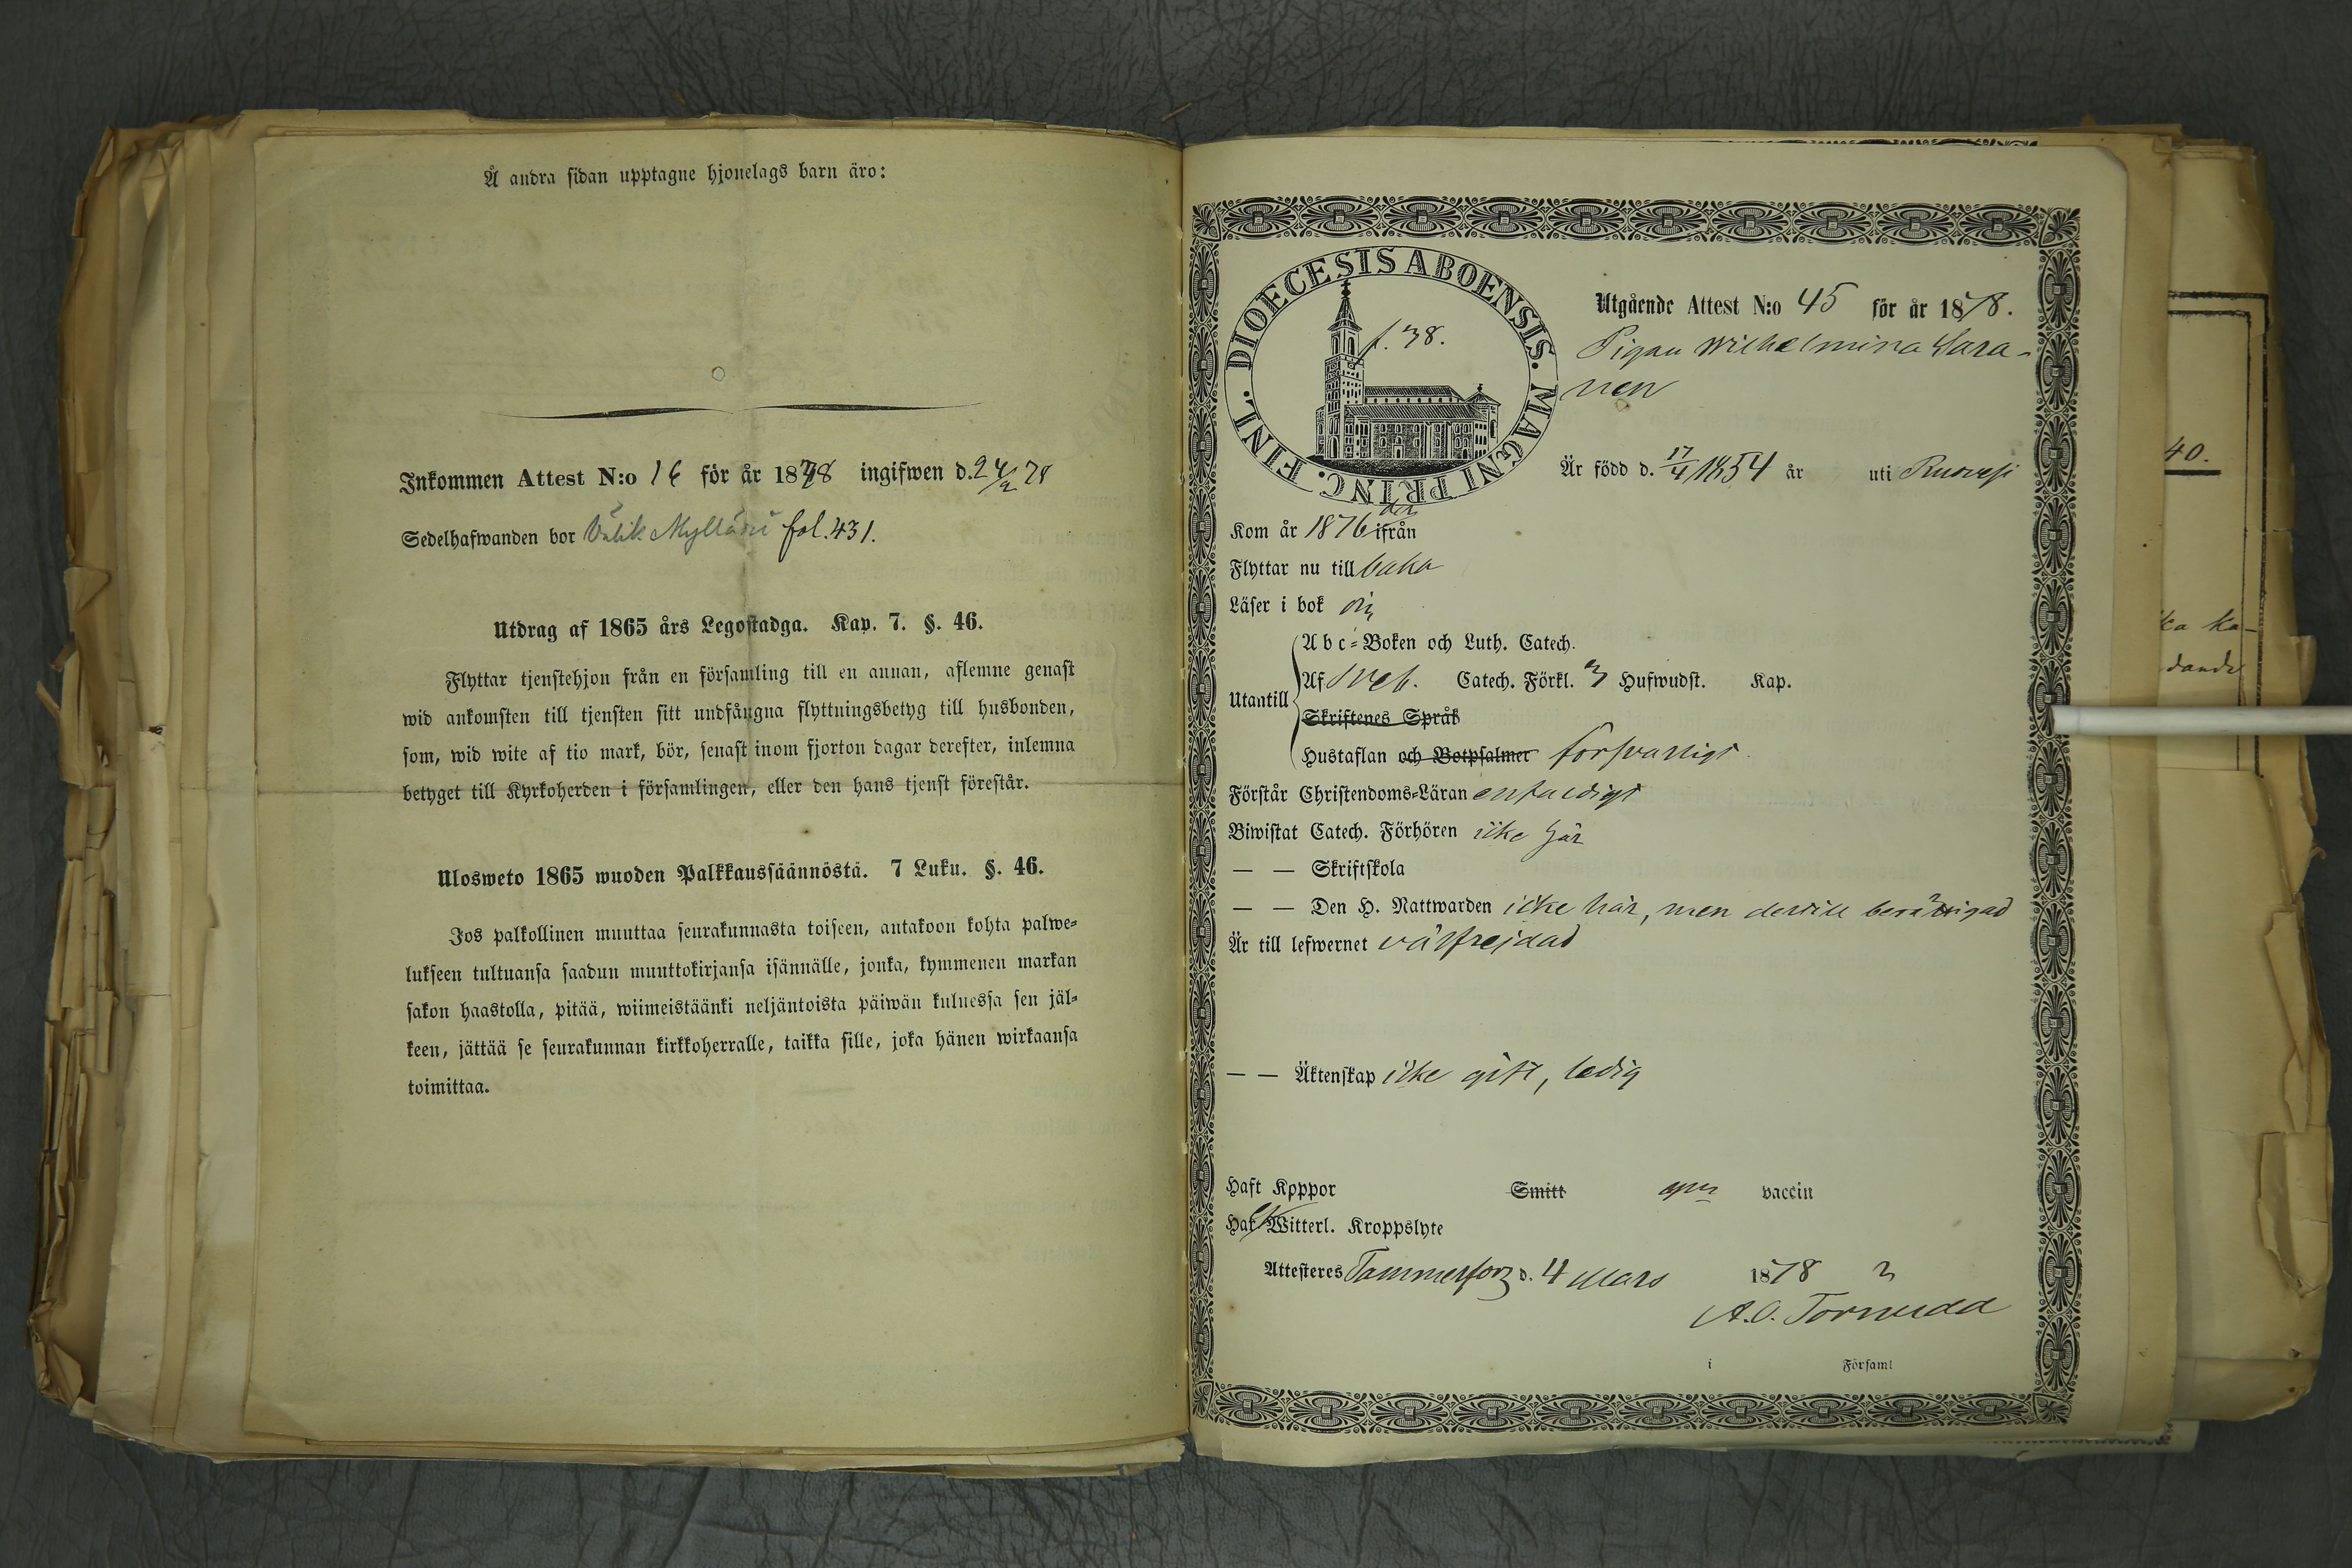 Å andra sidan upptagne hjonelags barn äro:
Inkommen Attest N:o 16 för år 1878 ingifwen d. 24/2 78
Sedelhafwanden bor Välik Mylläri fol. 431.
Utdrag af 1865 års Legostadga. Kap. 7. §. 46.
Flyttar tjenstehjon från en församling till en annan, aflemne genast
wid ankomsten till tjensten sitt undfångna flyttningsbetyg till husbonden,
som, wid wite af tio mark, bör, senast inom fjorton dagar derefter, inlemna
betyget till Kyrkoherden i församlingen, eller den hans tjenst förestår.
Ulosweto 1865 wuoden Palkkaussäännöstä. 7 Luku. §. 46.
Jos palkollinen muuttaa seurakunnasta toiseen, antakoon kohta palwe-
lukseen tultuansa saadun muuttokirjansa isännälle, jonka, kymmenen markan
sakon haastolla, pitää, wiimeistäänki neljäntoista päiwän kuluessa sen jäl-
keen, jättää se seurakunnan kirkkoherralle, taikka sille, joka hänen wirkaansa
toimittaa.
DIOECESIS ABOENSIS. MAGNI PRINC. FINL.
f. 38.
Utgående Attest N:o 45 för år 1878.
Pigan Wilhelmina Sara-
nen
Är född d. 17/4 1854 år uti Ruovesi
Kom år 1876 ifrån
Flyttar nu till baka
Läser i bok
Abc-Boken och Luth. Catech.
Utantill Af Sveb. Catech. Förkl. 3 Hufwudst. Kap.
Skriftenes Språk
Hustaflan och Botpsalmer försvarligt
Förstår Christendoms-Läran enfaldigt
Biwistat Catech. Förhören icke här
— — Skriftskola
— — Den H. Nattwarden icke här, men dertill berättigad
Är till lefwernet välfrejdad
— — Äktenskap icke gift, ledig
Haft Koppor Smitt vaccin
Haf Witterl. Kroppslyte
Attesteres Tammerfors d. 4 Mars 1878
A.O. Törnudd
i Församl
40.